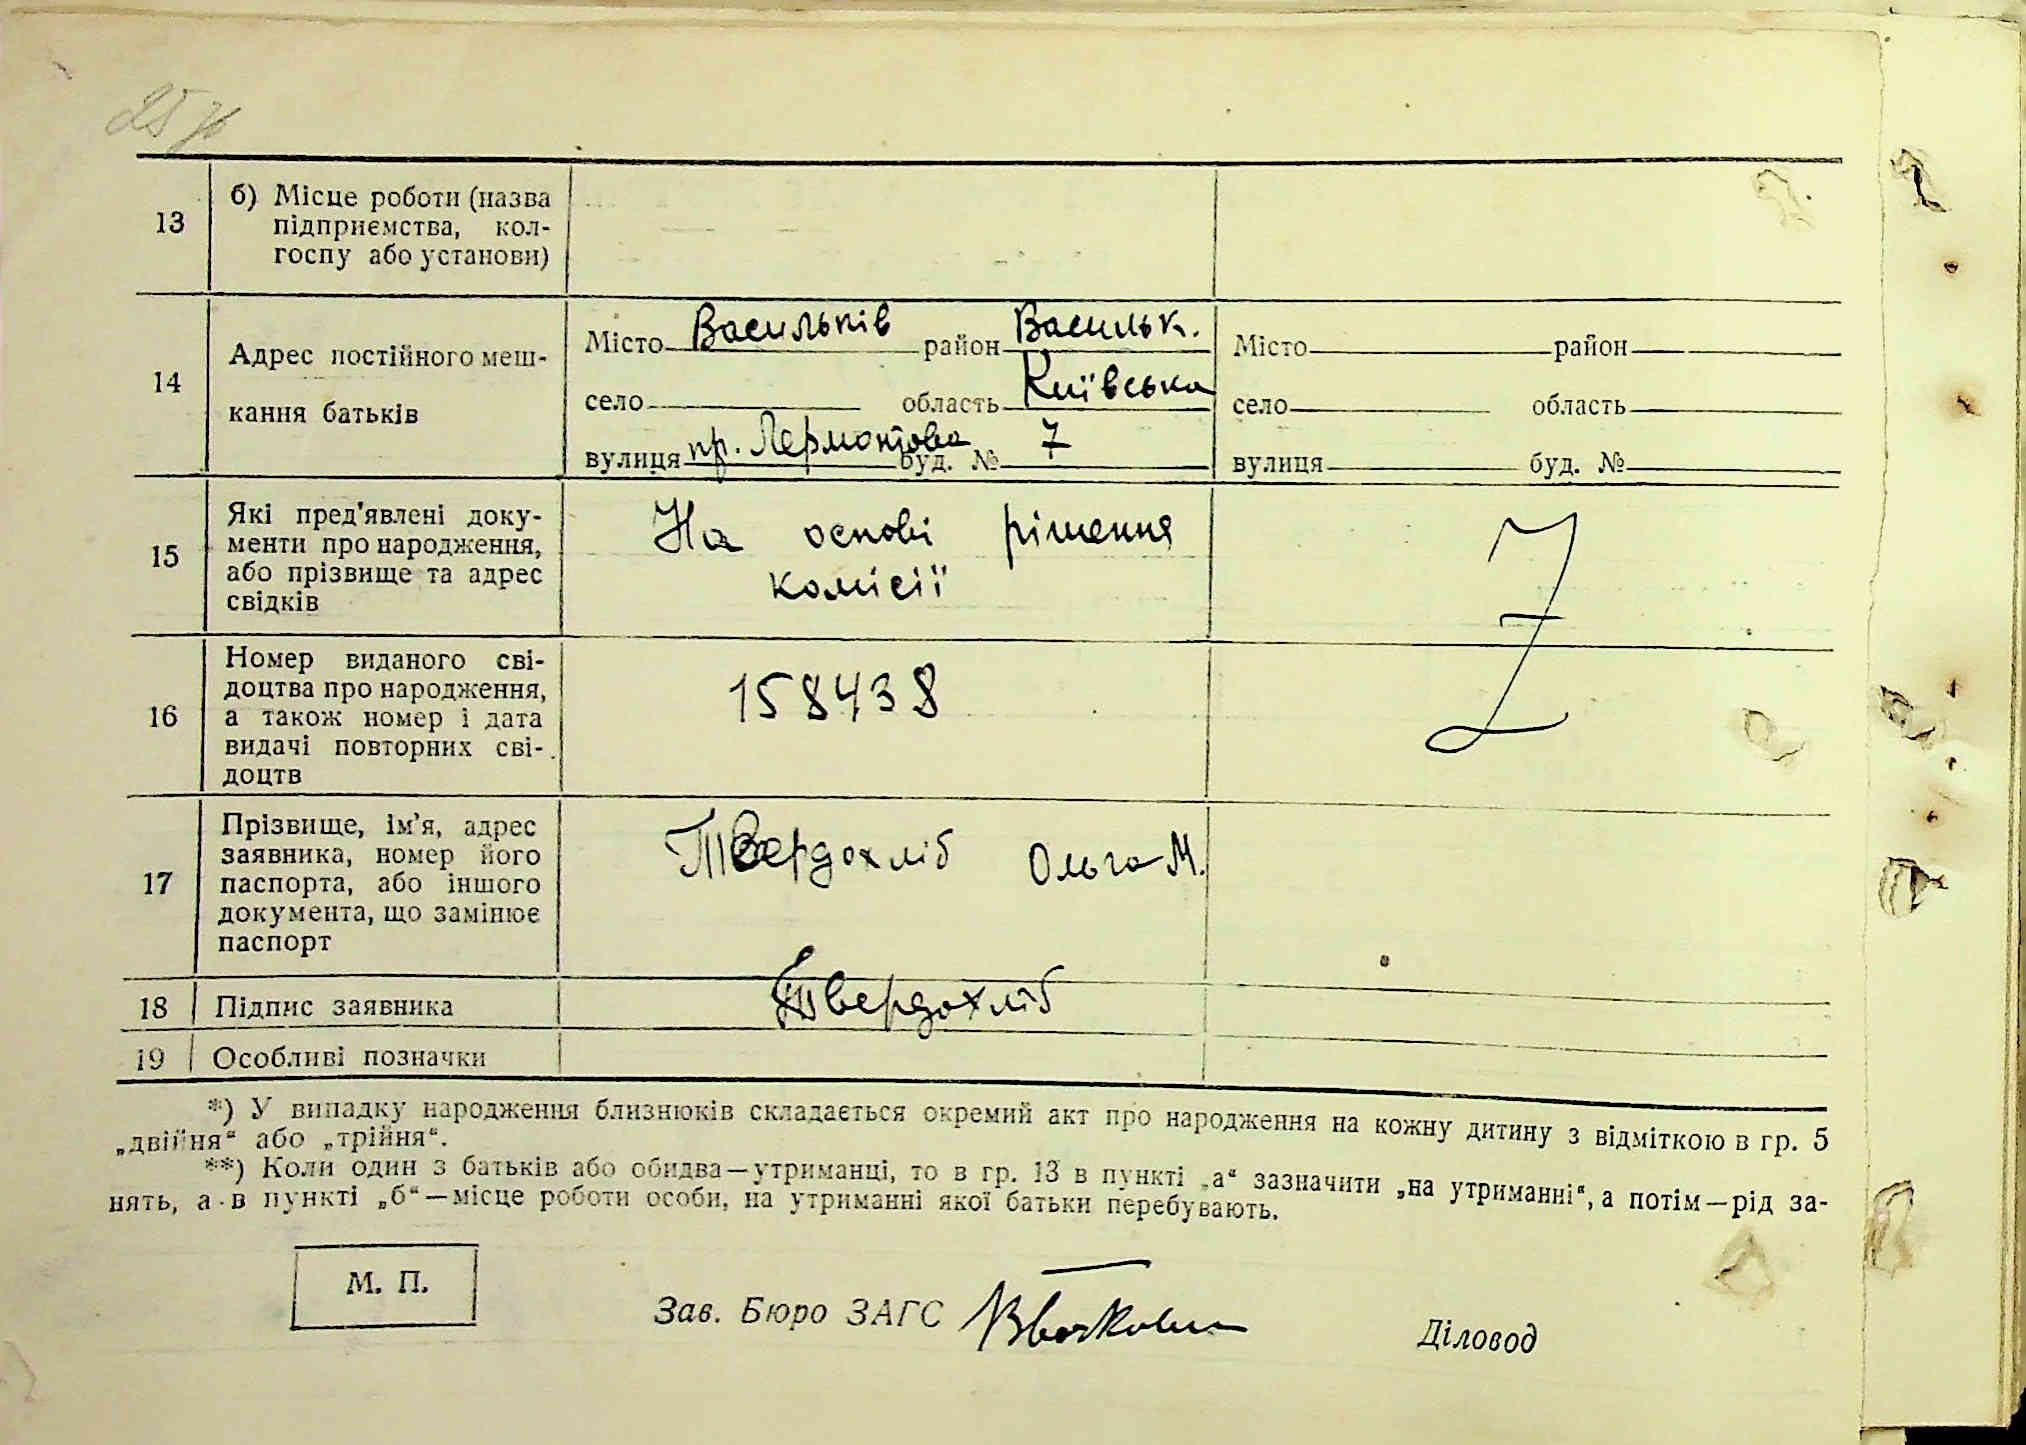 13 б) Місце роботи (назва
підприємства, кол-
госпу або установи)
14 Адрес постійного меш-
кання батьків
Місто Васильків район Васильк.
село область Київська
вулиця пр. Лермонтова буд. № 7
Місто район
село область
вулиця буд. №
15 Які пред'явлені доку-
менти про народження,
або прізвище та адрес
свідків
На основі рішення
комісії
16 Номер виданого сві-
доцтва про народження,
а також номер і дата
видачі повторних сві-
доцтв
158438
17 Прізвище, ім'я, адрес
заявника, номер його
паспорта, або іншого
документа, що замінює
паспорт
Твердохліб Ольга М.
18 Підпис заявника Твердохліб
19 Особливі позначки
*) У випадку народження близнюків складається окремий акт про народження на кожну дитину з відміткою в гр. 5
„двійня“ або „трійня“.
**) Коли один з батьків або обидва—утриманці, то в гр. 13 в пункті „а“ зазначити „на утриманні“, а потім—рід за-
нять, а в пункті „б“—місце роботи особи, на утриманні якої батьки перебувають.
М. П.
Зав. Бюро ЗАГС
Діловод